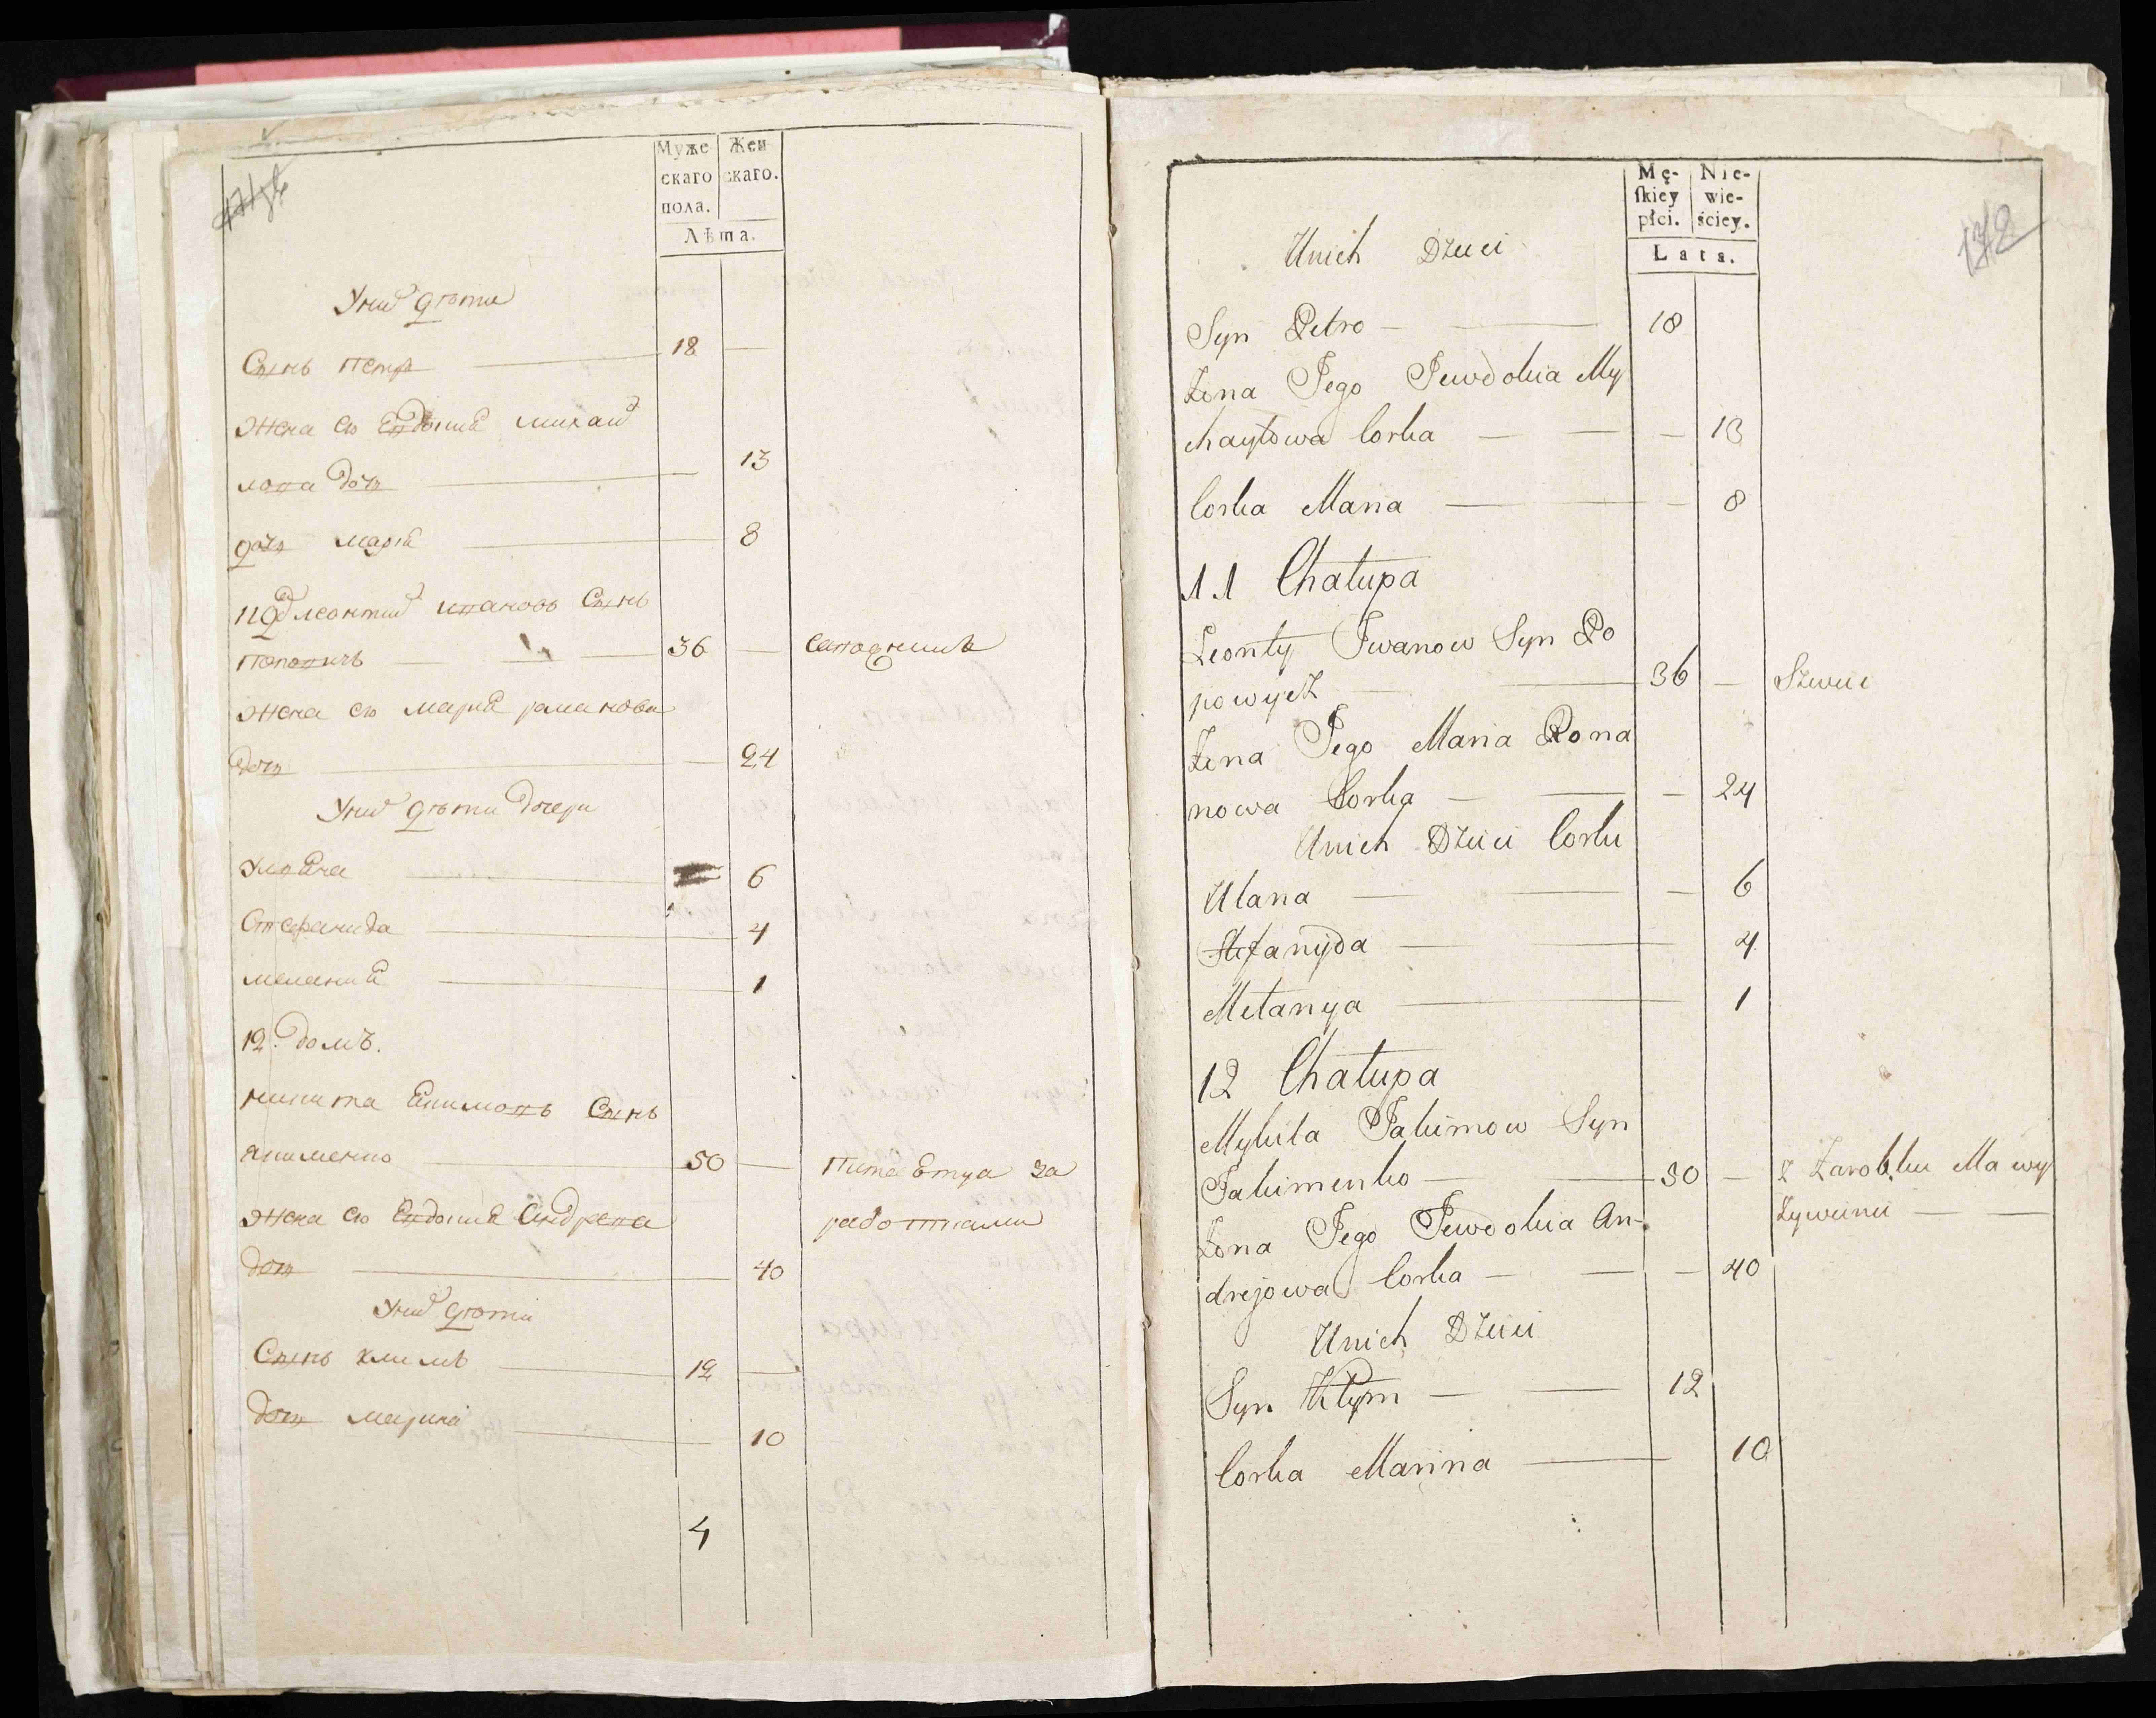 Муже
скаго
пола.
Жен
скаго.
Лѣта.
У них дѣти
Сынъ петр 18
жена его Евдокия михай
лова дочь 13
дочь мария 8
11 Д леонтий ивановъ Сынъ
Поповичъ 36 сапожникъ
жена его мария романова
дочь 24
У них дѣти дочери
Улияна 6
Стефанида 4
мелания 1
12. домъ.
никита Екимовъ Сынъ
якименко 50 питается за
жена его Евдокия Андреева работками
дочь 40
У них дѣти
Сынъ климъ 12
дочь марина 10
4
172
Mę-
skiey
płci.
Nie-
wie-
ściey.
Lata.
Unich Dzieci
Syn Petro 18
Żona Jego Jewdokia My
chayłowa Corka 13
Corka Maria 8
11 Chałupa
Leonty Iwanow Syn Po
powycz 36 Szwiec
Żona Jego Maria Roma
nowa Corka 24
Unich Dzieci Corki
Ulana 6
Stefanyda 4
Mełanya 1
12 Chałupa
Mykita Jakimow Syn
Jakimenko 50 z Zarobku Ma wy
Żona Jego Jewdokia An- Żywienie
drejowa Corka 40
Unich Dzieci
Syn Kłym 12
Corka Marina 10